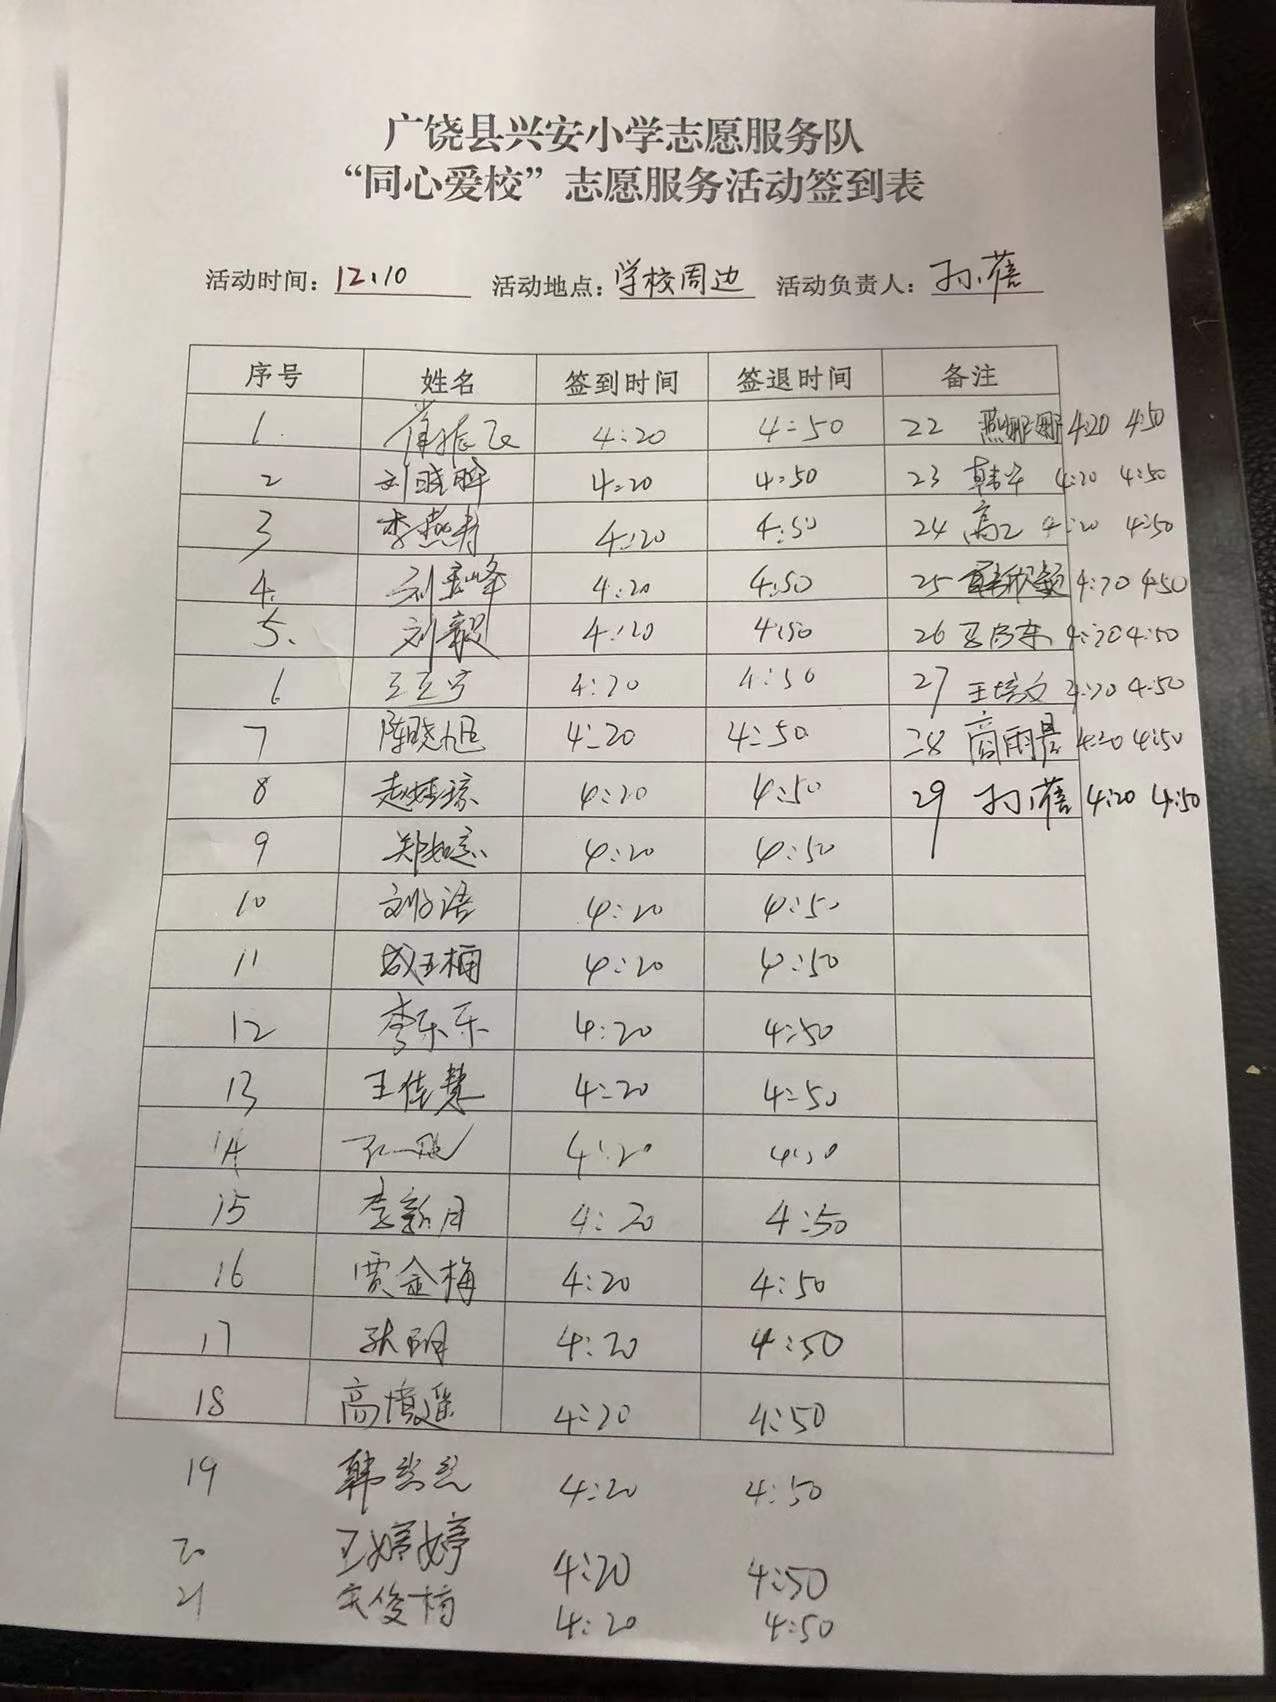 广饶县兴安小学志愿服务队
“同心爱校”志愿服务活动签到表
活动时间：12.10 活动地点：学校周边 活动负责人：孙蓓
序号 姓名 签到时间 签退时间 备注
1. 4:20 4:50 22 燕娜娜 4:20 4:50
2 刘晓晖 4:20 4:50 23 韩宁 4:20 4:50
3 李燕青 4:20 4:50 24 4:20 4:50
4. 刘玉峰 4:20 4:50 25 4:20 4:50
5. 刘毅 4:20 4:50 26 4:20 4:50
6 王立宁 4:20 4:50 27 王培文 4:20 4:50
7 陈晓旭 4:20 4:50 28 商雨晨 4:20 4:50
8 4:20 4:50 29 孙蓓 4:20 4:50
9 4:20 4:50
10 刘子语 4:20 4:50
11 成玉楠 4:20 4:50
12 李乐乐 4:20 4:50
13 王佳慧 4:20 4:50
14 4:20 4:50
15 李新月 4:20 4:50
16 贾金梅 4:20 4:50
17 张明 4:20 4:50
18 4:20 4:50
19 4:20 4:50
20 王婷婷 4:20 4:50
21 宋俊梅 4:20 4:50